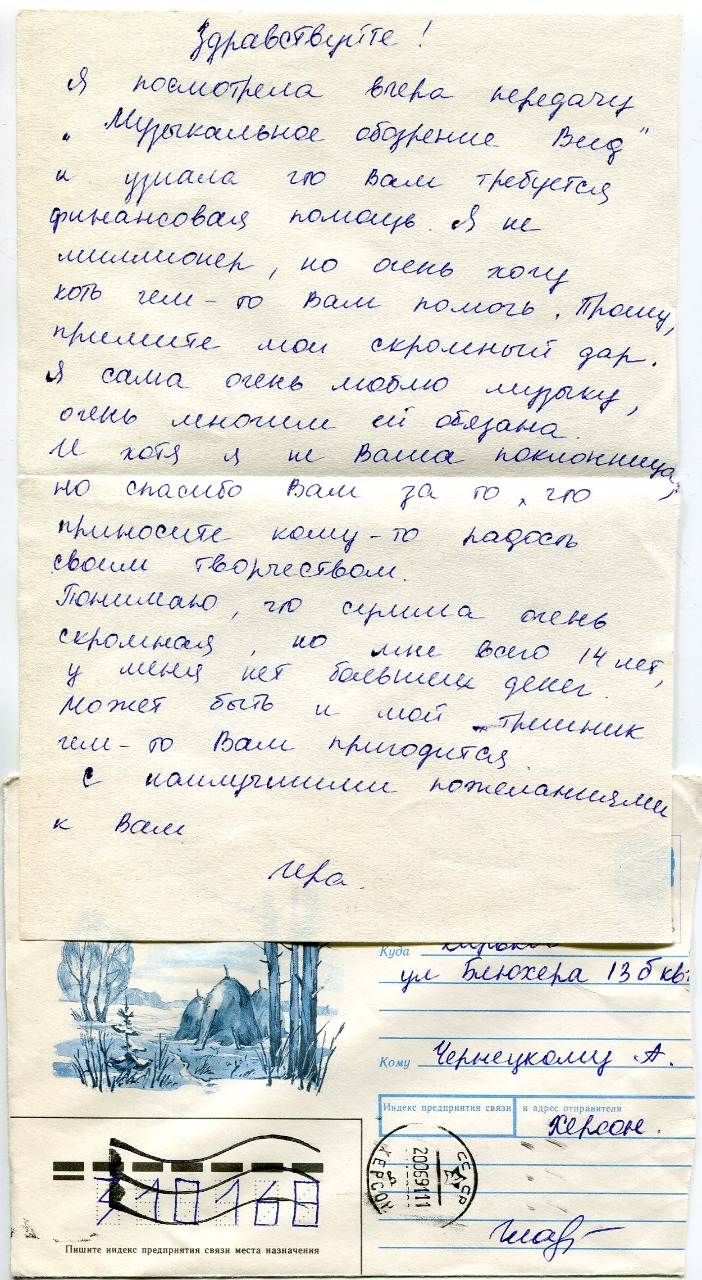 Здравствуйте!
Я посмотрела вчера передачу
„Музыкальное обозрение Вид"
и узнала что Вам требуется
финансовая помощь. Я не
миллионер, но очень хочу
хоть чем-то Вам помочь. Прошу,
примите мой скромный дар.
Я сама очень люблю музыку,
очень многим ей обязана.
И хотя я не Ваша поклонница,
но спасибо Вам за то, что
приносите кому-то радость
своим творчеством.
Понимаю, что сумма очень
скромная, но мне всего 14 лет,
у меня нет больших денег.
Может быть и мой трешник
чем-то Вам пригодится.
С наилучшими пожеланиями
к Вам
Ира.
Куда
ул Блюхера 13б кв.
Кому Чернецкому А.
Индекс предприятия связи и адрес отправителя
Херсон.
СССР
ХЕРСОН
20069111
310168
Пишите индекс предприятия связи места назначения